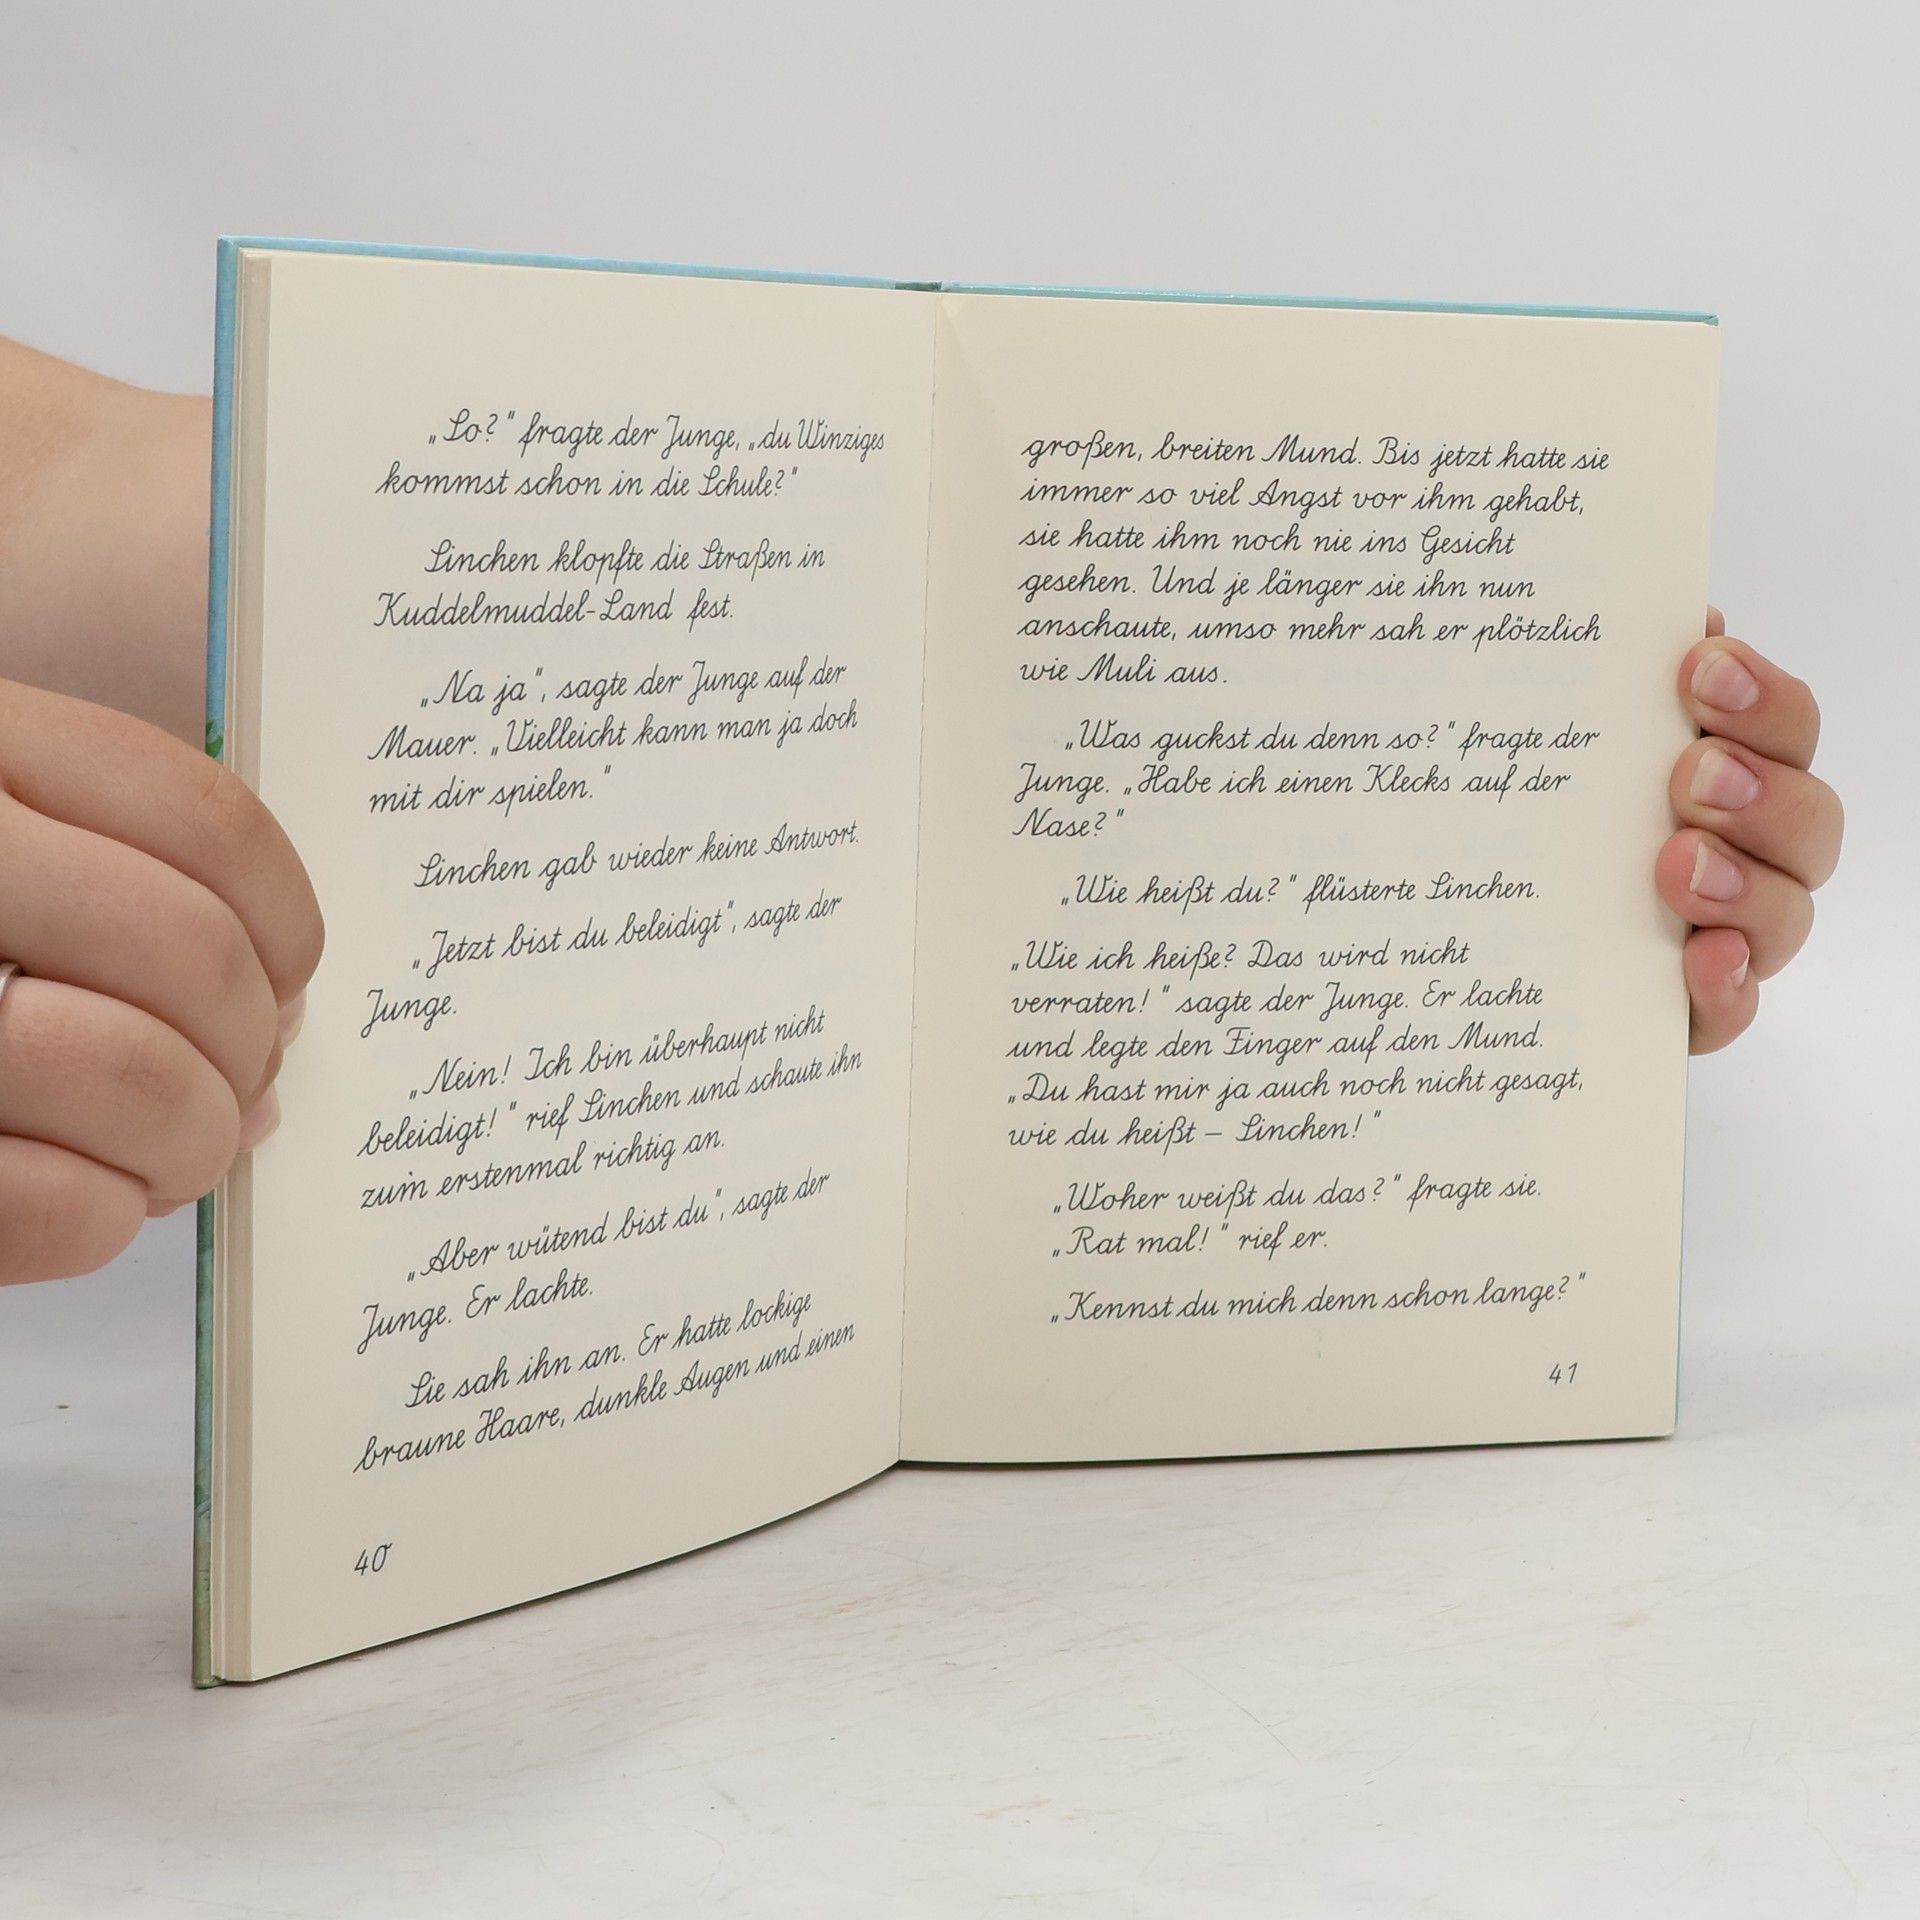 „So?" fragte der Junge, „du Winziges
kommst schon in die Schule?"
Linchen klopfte die Straßen in
Kuddelmuddel-Land fest.
„Na ja", sagte der Junge auf der
Mauer. „Vielleicht kann man ja doch
mit dir spielen."
Linchen gab wieder keine Antwort.
„Jetzt bist du beleidigt", sagte der
Junge.
„Nein! Ich bin überhaupt nicht
beleidigt!" rief Linchen und schaute ihn
zum erstenmal richtig an.
„Aber wütend bist du", sagte der
Junge. Er lachte.
Sie sah ihn an. Er hatte lockige
braune Haare, dunkle Augen und einen
40
großen, breiten Mund. Bis jetzt hatte sie
immer so viel Angst vor ihm gehabt,
sie hatte ihm noch nie ins Gesicht
gesehen. Und je länger sie ihn nun
anschaute, umso mehr sah er plötzlich
wie Muli aus.
„Was guckst du denn so?" fragte der
Junge. „Habe ich einen Klecks auf der
Nase?"
„Wie heißt du?" flüsterte Linchen.
„Wie ich heiße? Das wird nicht
verraten!" sagte der Junge. Er lachte
und legte den Finger auf den Mund.
„Du hast mir ja auch noch nicht gesagt,
wie du heißt – Linchen!"
„Woher weißt du das?" fragte sie.
„Rat mal!" rief er.
„Kennst du mich denn schon lange?"
41